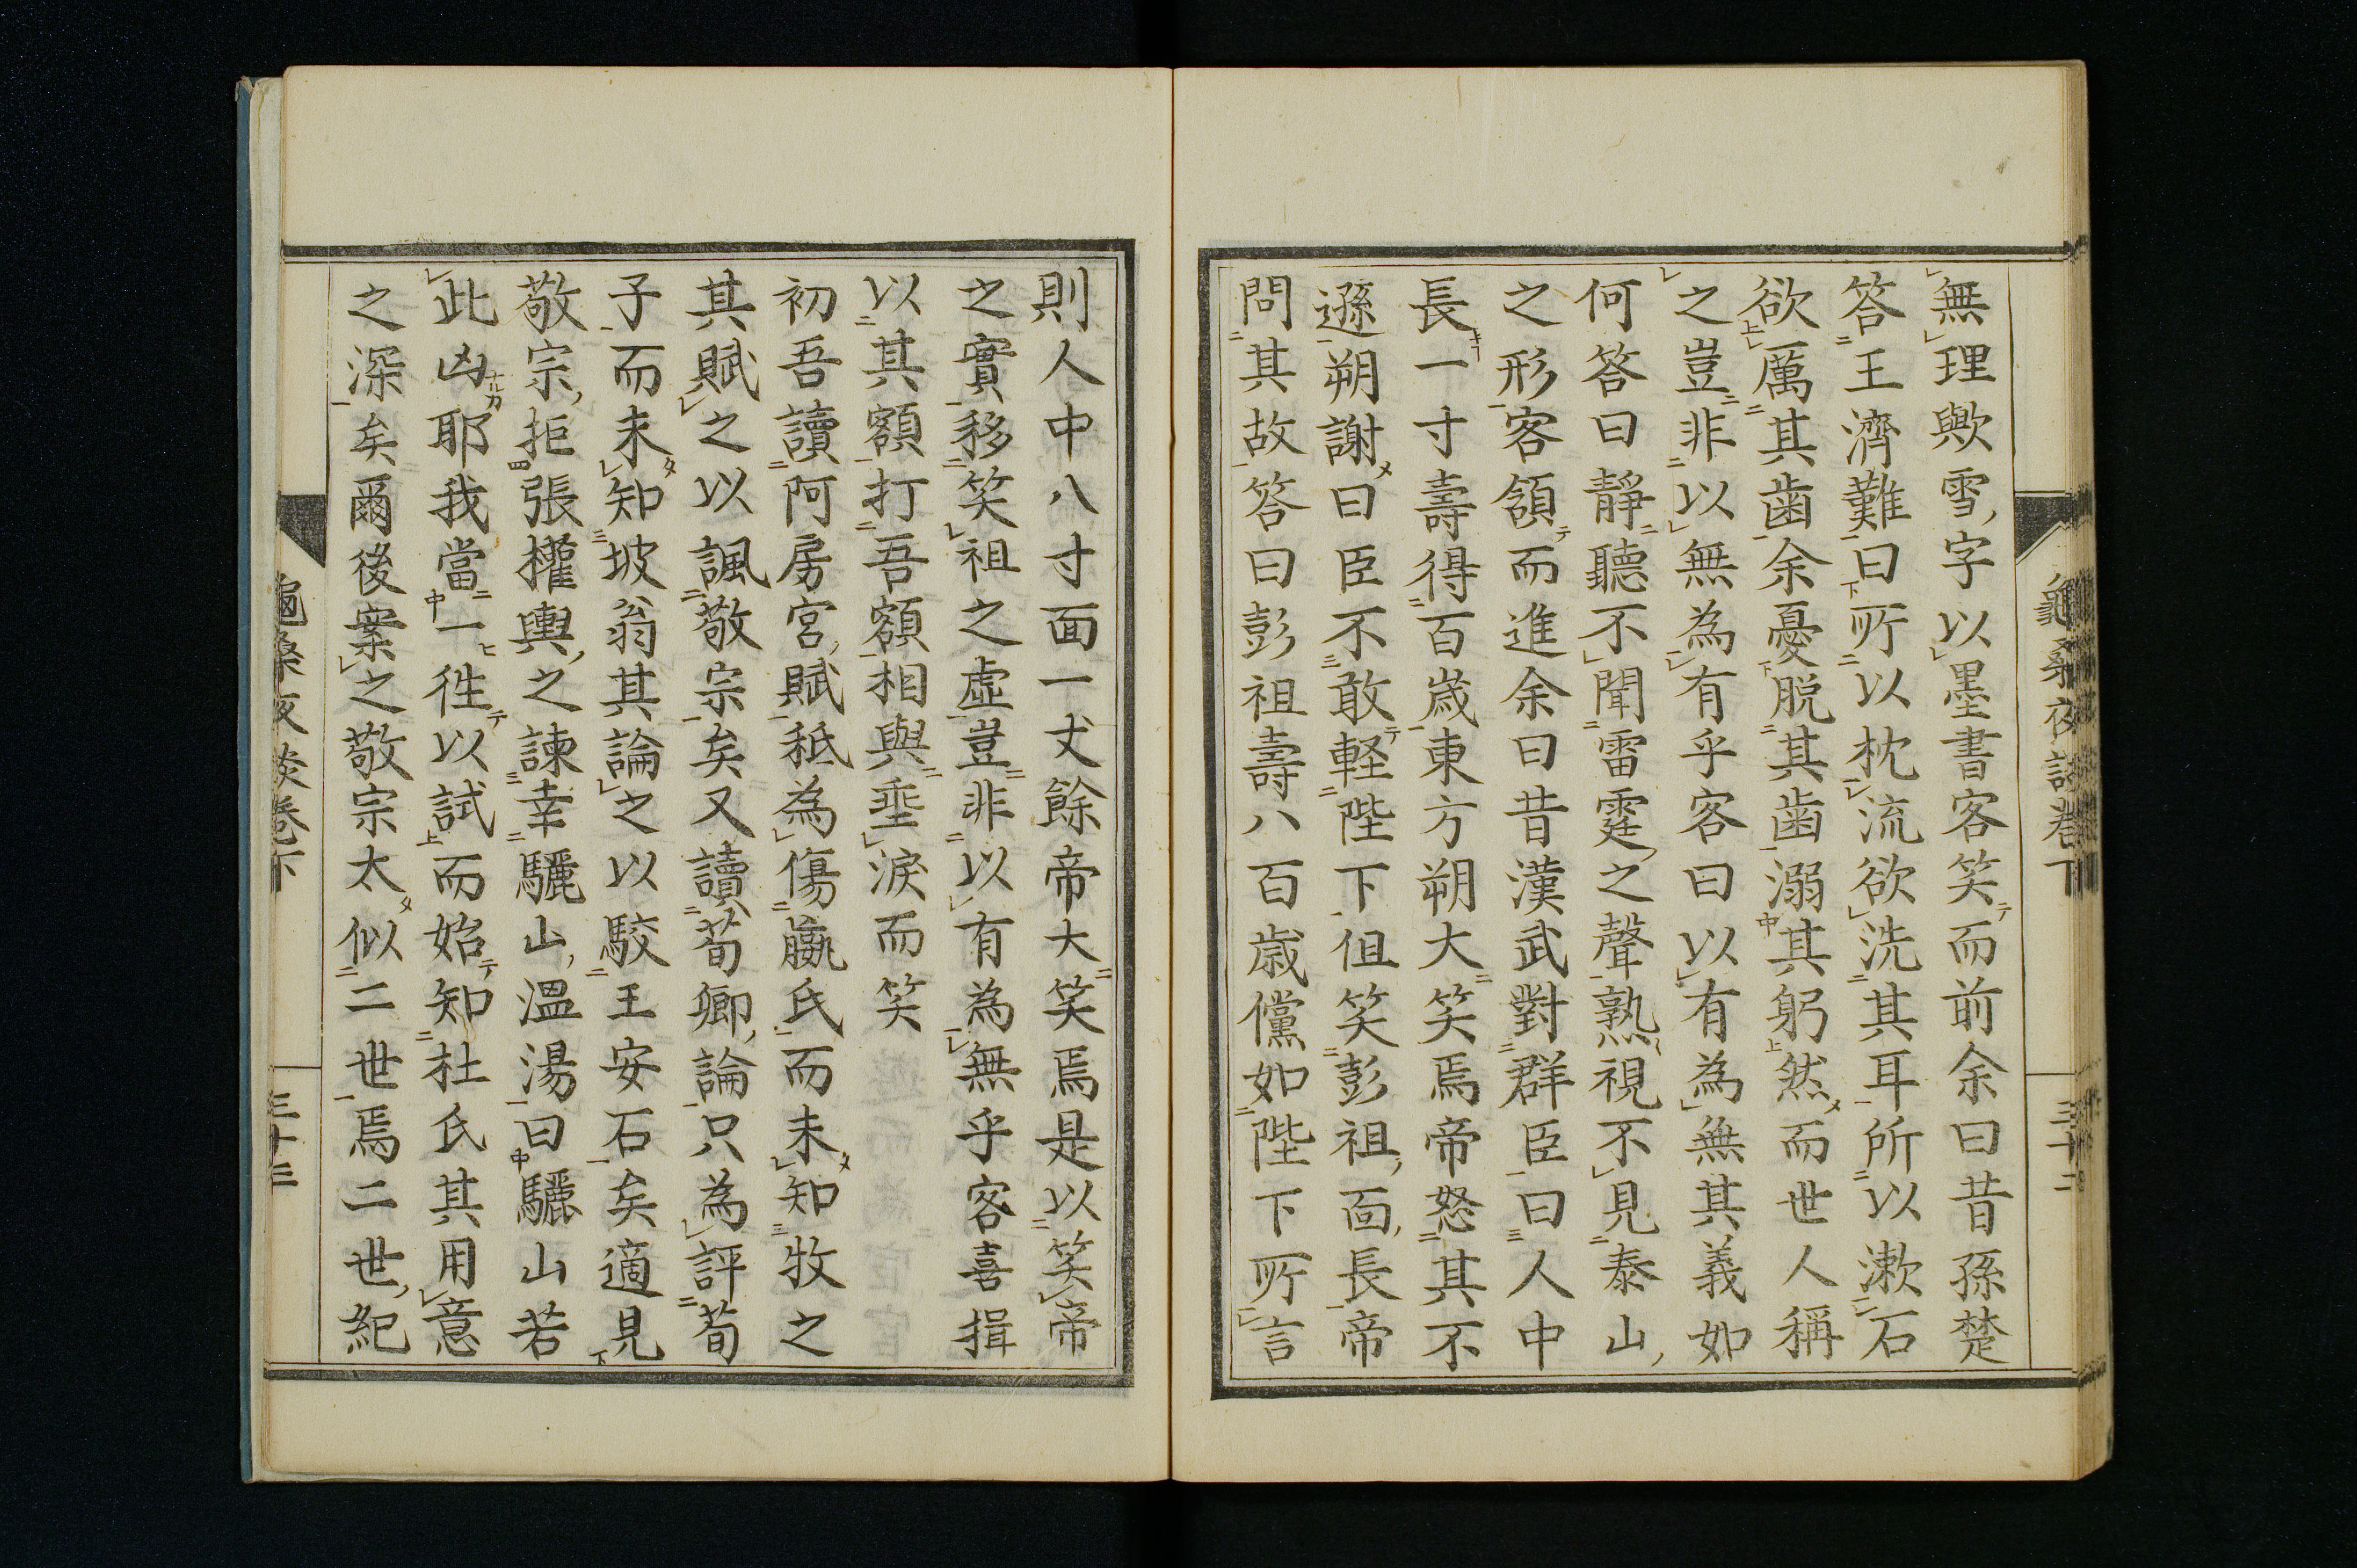 無理歟雪字以墨書客笑而前余曰昔孫楚
答王濟難曰所以枕流欲洗其耳所以漱石
欲厲其歯余憂脱其歯溺其躬然而世人稱
之豈非以無為有乎客曰以有為無其義如
何答曰靜聽不聞雷霆之聲熟視不見泰山
之形客頷而進余曰昔漢武對群臣曰人中
長一寸壽得百歳東方朔大笑焉帝怒其不
遜朔謝曰臣不敢軽陛下但笑彭祖面長帝
問其故答曰彭祖壽八百歳儻如陛下所言
則人中八寸面一丈餘帝大笑焉是以笑帝
之實移笑祖之虛豈非以有為無乎客喜揖
以其額打吾額相與垂涙而笑
初吾讀阿房宮賦秖為傷嬴氏而未知牧之
其賦之以諷敬宗矣又讀荀卿論只為評荀
子而未知坡翁其論之以駮王安石矣適見
敬宗拒張權輿之諫幸驪山溫湯曰驪山若
此凶耶我當一徃以試而始知杜氏其用意
之深矣爾後案之敬宗太似二世焉二世紀